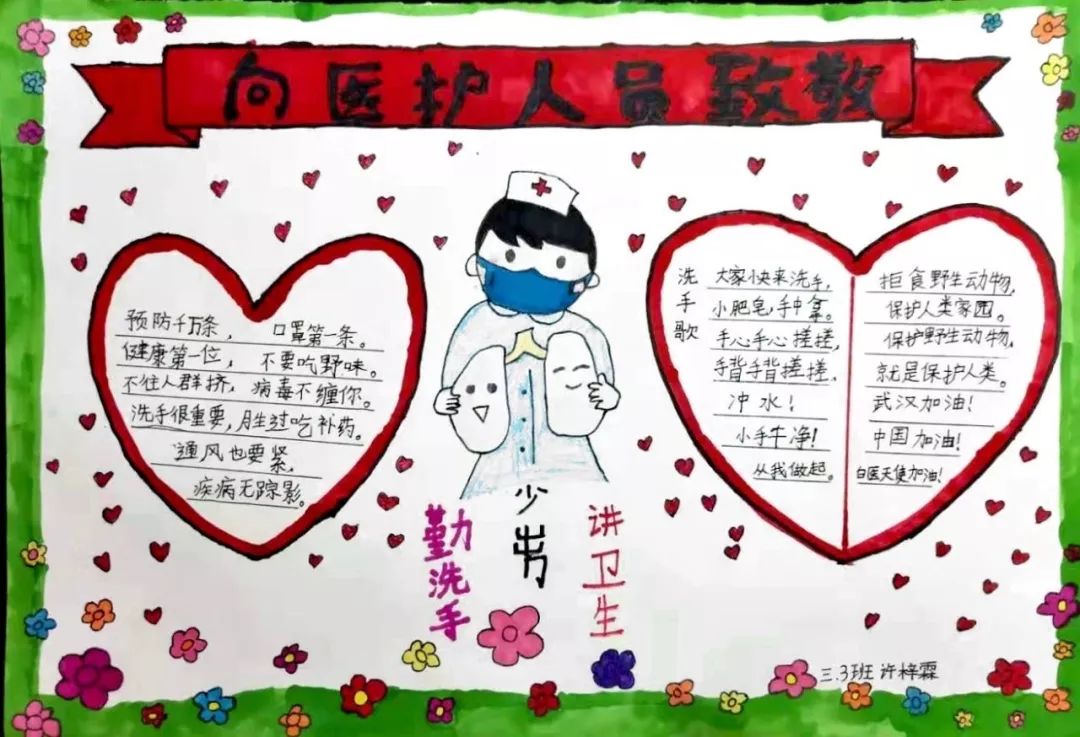 向医护人员致敬
预防千万条，口罩第一条。
健康第一位，不要吃野味。
不往人群挤，病毒不缠你。
洗手很重要，胜过吃补药。
通风也要紧，
疾病无踪影。
洗手歌
大家快来洗手，
小肥皂，手中拿。
手心手心搓搓，
手背手背搓搓，
冲水！
小手牛净！
从我做起。
拒食野生动物，
保护人类家园。
保护野生动物，
就是保护人类。
武汉加油！
中国加油！
白医天使加油！
勤洗手
少出
讲卫生
三.3班 许梓霖